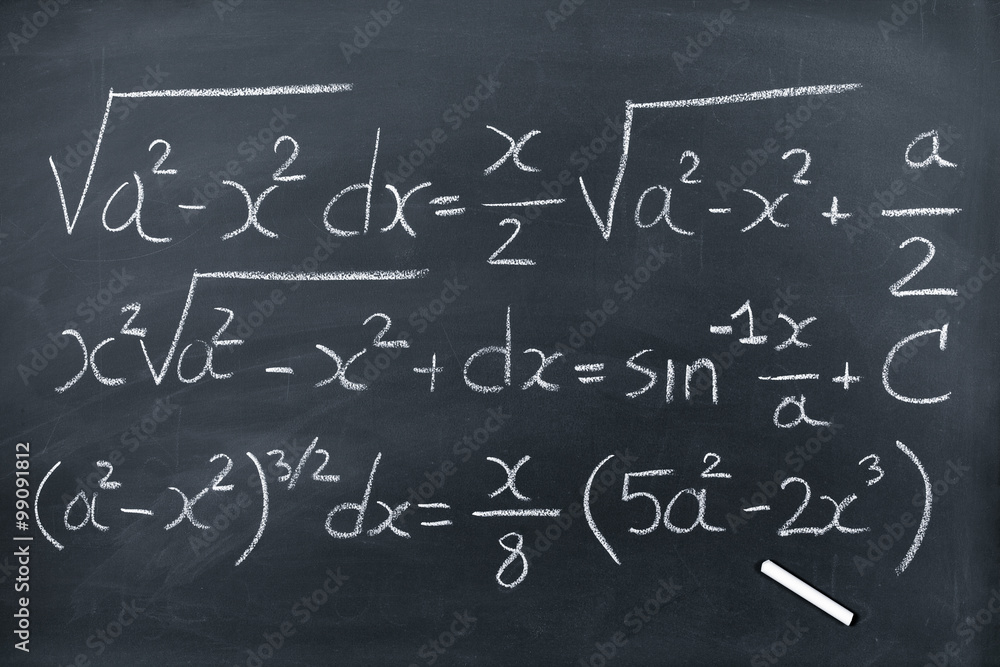 √a² - x² dx = x/2 √a² - x² + a/2
x² √a² - x² + dx = sin⁻¹ x/a + C
(a² - x²)^3/2 dx = x/8 (5a² - 2x³)
Adobe Stock | 99091812